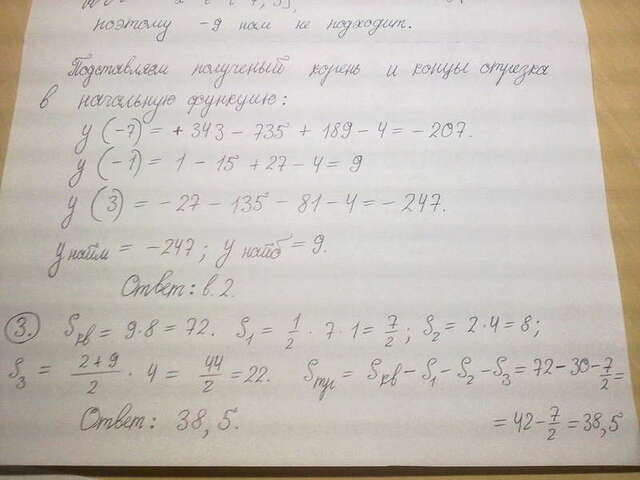 поэтому -9 нам не подходит.
Подставляем полученый корень и концы отрезка
в начальную функцию:
y (-7) = + 343 - 735 + 189 - 4 = - 207.
y (-1) = 1 - 15 + 27 - 4 = 9
y (3) = - 27 - 135 - 81 - 4 = - 247.
y найм = -247; y найб = 9.
Ответ: в. 2.
3. Sкв = 9·8 = 72. S1 = 1/2 · 7 · 1 = 7/2; S2 = 2·4 = 8;
S3 = (2+9)/2 · 4 = 44/2 = 22. Sтр = Sкв - S1 - S2 - S3 = 72 - 30 - 7/2 =
Ответ: 38,5. = 42 - 7/2 = 38,5